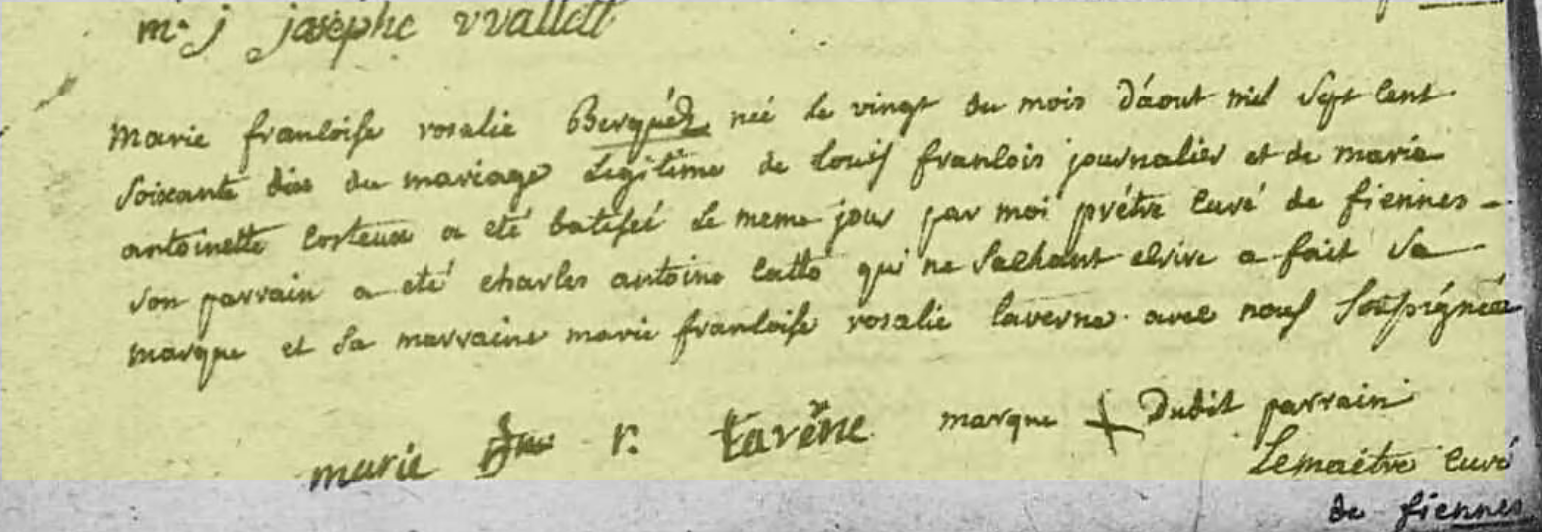 m. j josephe vvallett
marie francoise rosalie Berquéz née le vingt du mois d'áout mil sept cent
soixante dix du mariage legitime de louis francois journalier et de marie
antoinette costeux a eté batisée le meme jour par moi prétre curé de fiennes -
son parrain a eté charles antoine catto qui ne sachant ecrire a fait sa
marque et sa marraine marie francoise rosalie taverne avec nous soussignée
marie r. tavērne marque + Dudit parrain
Lemaétre curé
de fiennes